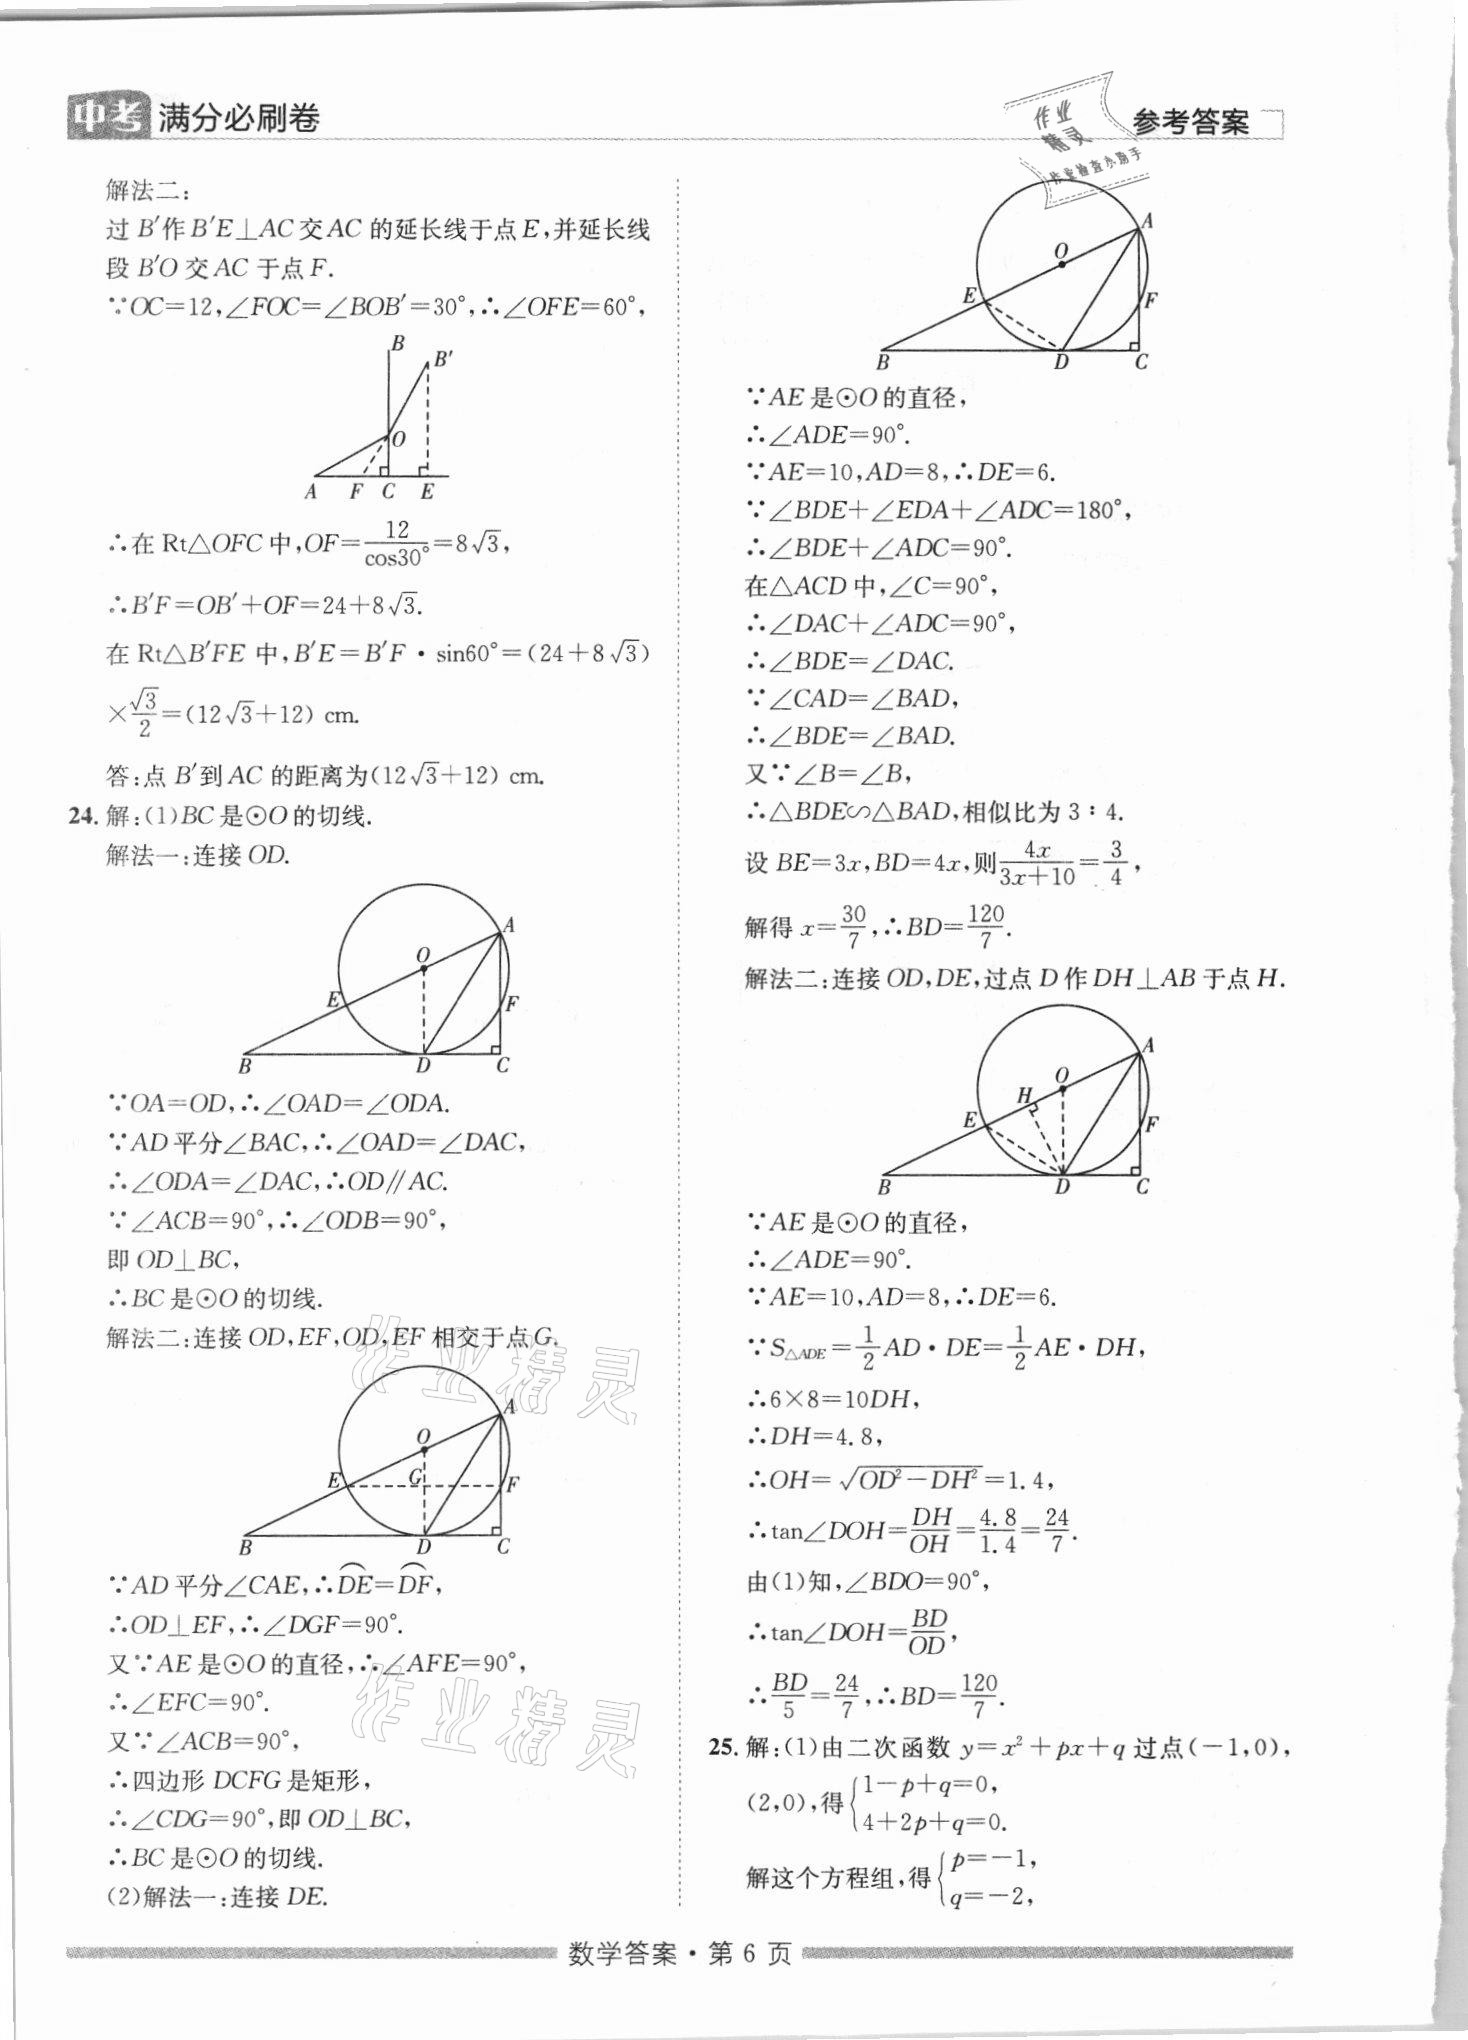 中考 满分必刷卷
参考答案
作业
精灵
作业检查小助手
解法二:
过 B′作 B′E⊥AC 交 AC 的延长线于点 E,并延长线
段 B′O 交 AC 于点 F.
∵OC=12,∠FOC=∠BOB′=30°,∴∠OFE=60°,
B
B′
O
A F C E
∴在 Rt△OFC 中,OF=12/cos30°=8√3,
∴B′F=OB′+OF=24+8√3.
在 Rt△B′FE 中,B′E=B′F·sin60°=(24+8√3)
×√3/2=(12√3+12) cm.
答:点 B′到 AC 的距离为(12√3+12) cm.
24. 解:(1)BC 是⊙O 的切线.
解法一:连接 OD.
A
O
E
F
B D C
∵OA=OD,∴∠OAD=∠ODA.
∵AD 平分∠BAC,∴∠OAD=∠DAC,
∴∠ODA=∠DAC,∴OD∥AC.
∵∠ACB=90°,∴∠ODB=90°,
即 OD⊥BC,
∴BC 是⊙O 的切线.
解法二:连接 OD,EF,OD,EF 相交于点 G.
A
O
E G F
B D C
∵AD 平分∠CAE,∴D͡E=D͡F,
∴OD⊥EF,∴∠DGF=90°.
又∵AE 是⊙O 的直径,∴∠AFE=90°,
∴∠EFC=90°.
又∵∠ACB=90°,
∴四边形 DCFG 是矩形,
∴∠CDG=90°,即 OD⊥BC,
∴BC 是⊙O 的切线.
(2)解法一:连接 DE.
作业精灵
作业精灵
A
O
E
F
B D C
∵AE 是⊙O 的直径,
∴∠ADE=90°.
∵AE=10,AD=8,∴DE=6.
∵∠BDE+∠EDA+∠ADC=180°,
∴∠BDE+∠ADC=90°.
在△ACD 中,∠C=90°,
∴∠DAC+∠ADC=90°,
∴∠BDE=∠DAC.
∵∠CAD=∠BAD,
∴∠BDE=∠BAD.
又∵∠B=∠B,
∴△BDE∽△BAD,相似比为 3∶4.
设 BE=3x,BD=4x,则4x/(3x+10)=3/4,
解得 x=30/7,∴BD=120/7.
解法二:连接 OD,DE,过点 D 作 DH⊥AB 于点 H.
A
O
H
E
F
B D C
∵AE 是⊙O 的直径,
∴∠ADE=90°.
∵AE=10,AD=8,∴DE=6.
∵S△ADE=1/2AD·DE=1/2AE·DH,
∴6×8=10DH,
∴DH=4.8,
∴OH=√(OD²−DH²)=1.4,
∴tan∠DOH=DH/OH=4.8/1.4=24/7.
由(1)知,∠BDO=90°,
∴tan∠DOH=BD/OD,
∴BD/5=24/7,∴BD=120/7.
25. 解:(1)由二次函数 y=x²+px+q 过点(−1,0),
(2,0),得{1−p+q=0,
4+2p+q=0.
解这个方程组,得{p=−1,
q=−2,
数学答案·第 6 页